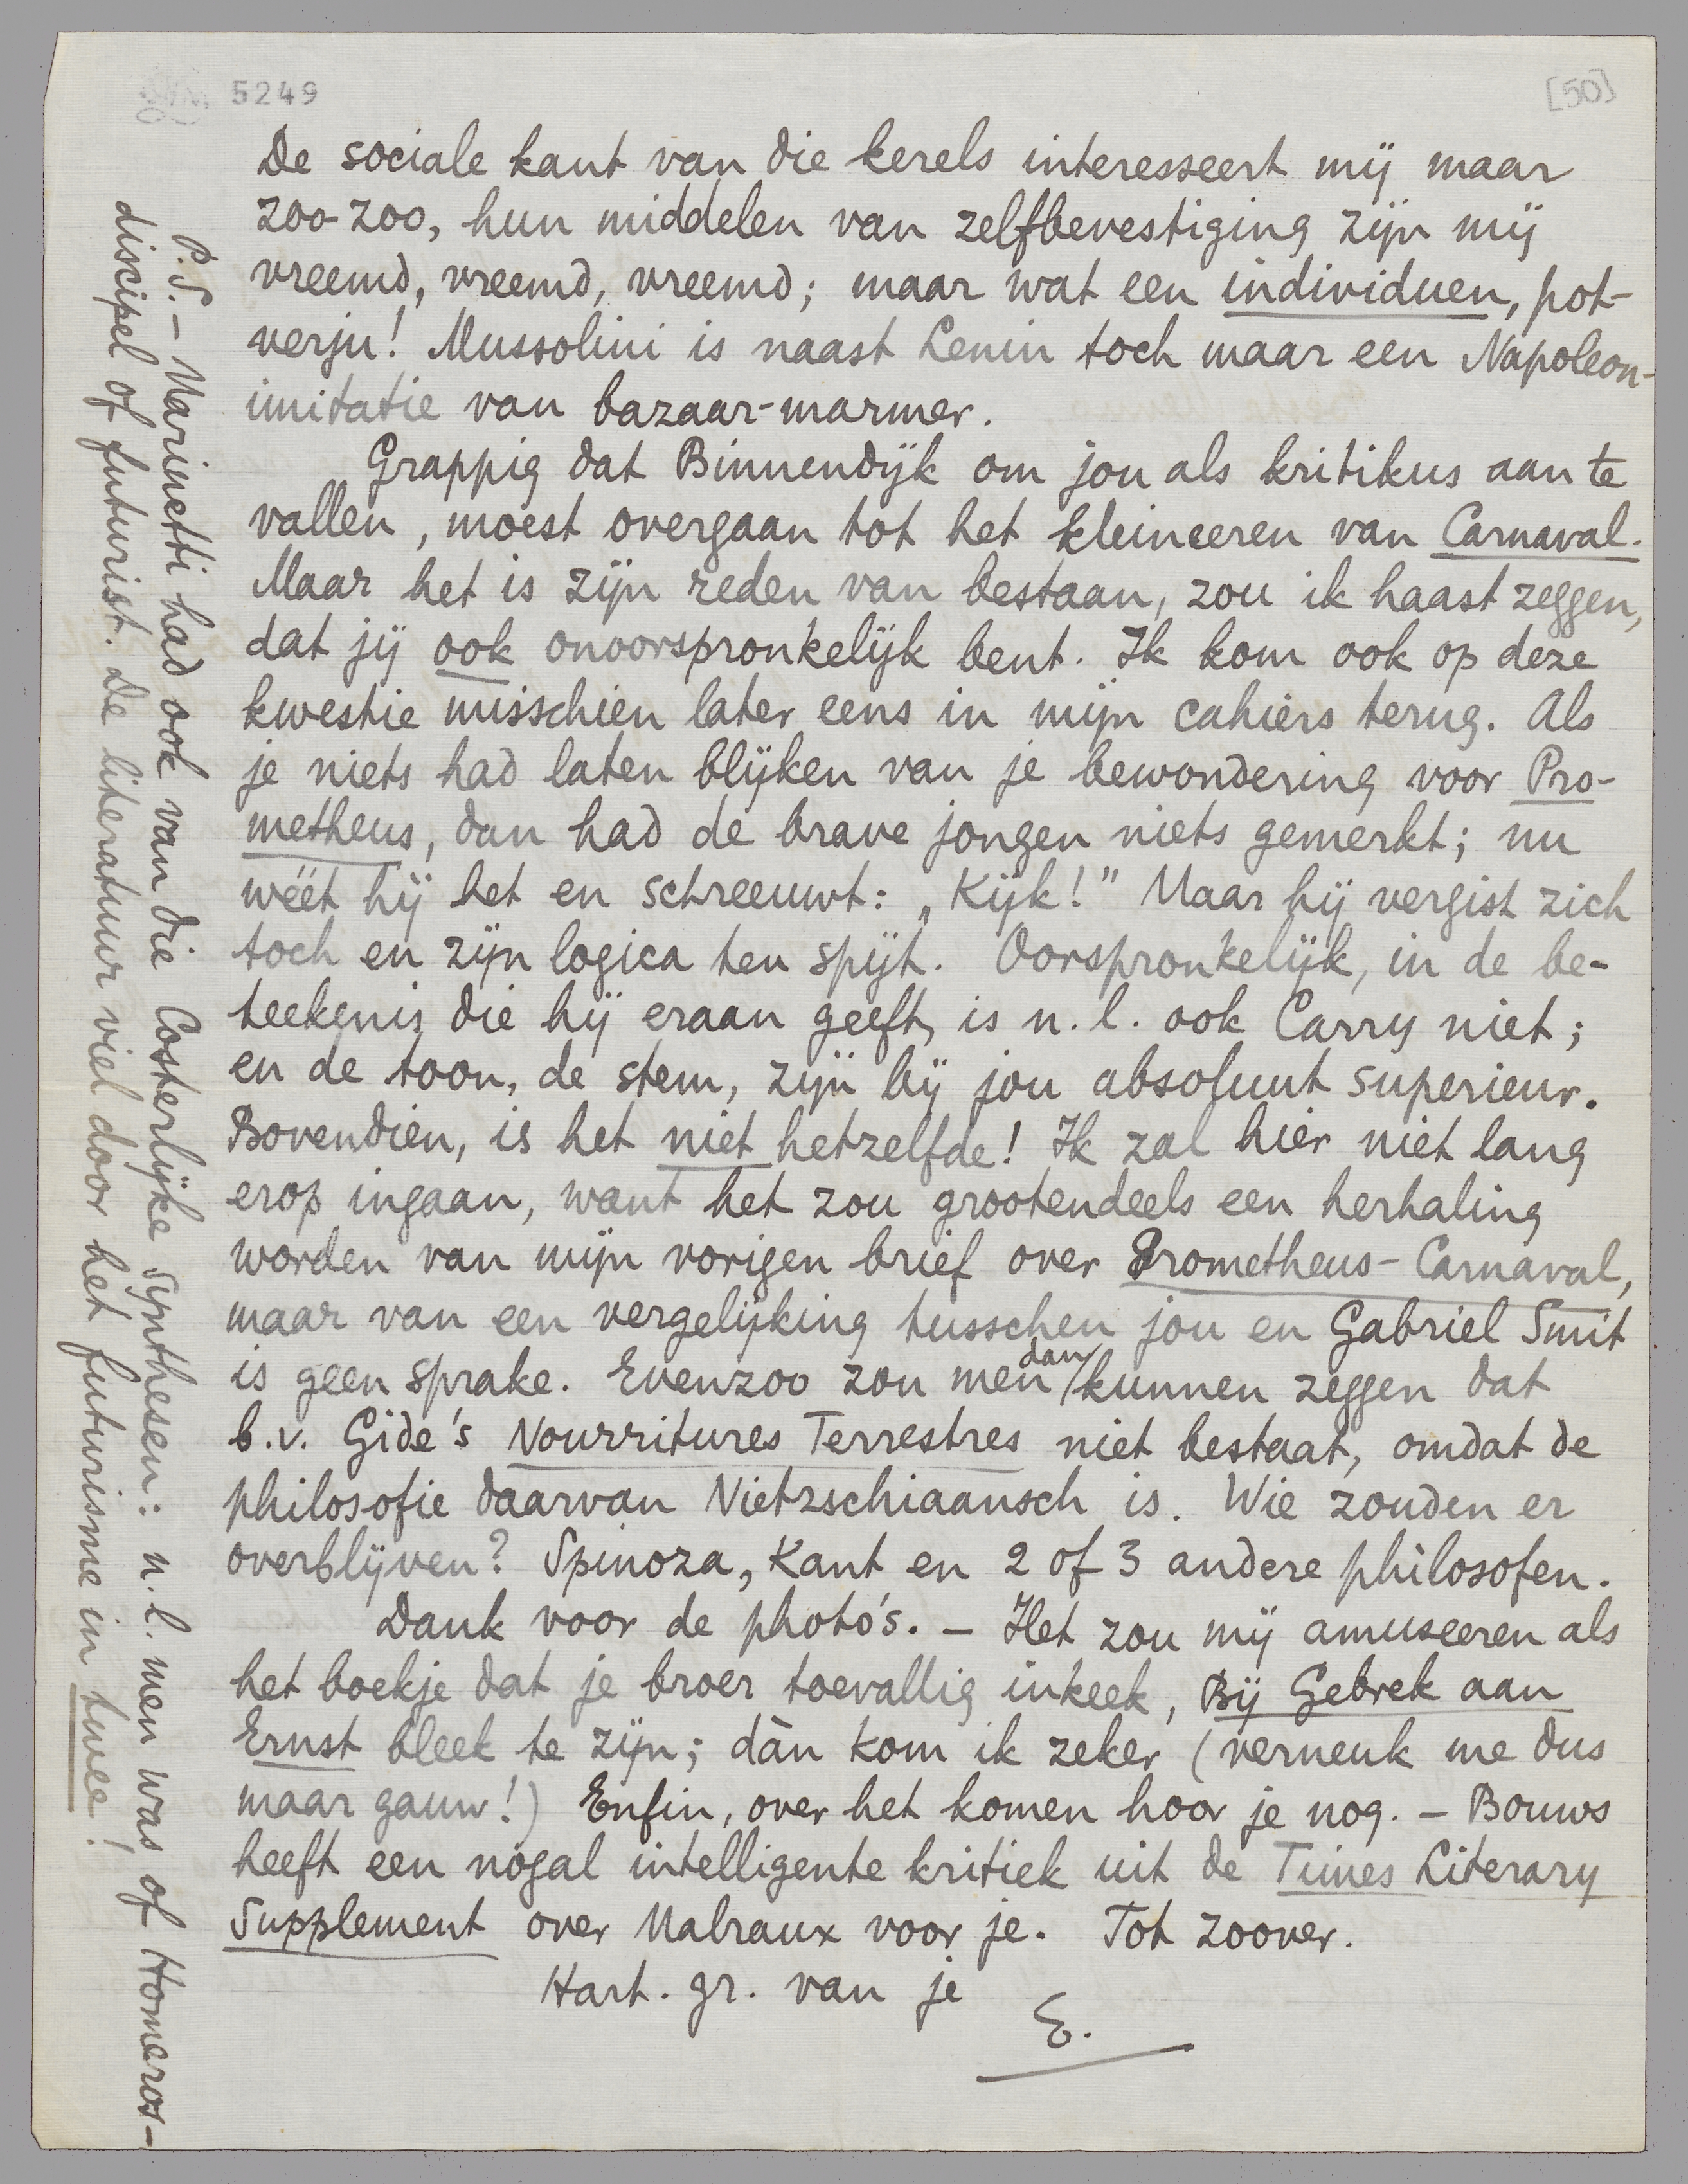 5249
[50]
De sociale kant van die kerels interesseert mij maar
zoo-zoo, hun middelen van zelfbevestiging zijn mij
vreemd, vreemd, vreemd; maar wat een individuen, pot-
verju! Mussolini is naast Lenin toch maar een Napoleon-
imitatie van bazaar-marmer.
Grappig dat Binnendijk om jou als kritikus aan te
vallen, moest overgaan tot het kleineeren van Carnaval.
Maar het is zijn reden van bestaan, zou ik haast zeggen,
dat jij ook onoorspronkelijk bent. Ik kom ook op deze
kwestie misschien later eens in mijn cahiers terug. Als
je niets had laten blijken van je bewondering voor Pro-
metheus, dan had de brave jongen niets gemerkt; nu
wéét hij het en schreeuwt: „Kijk!" Maar hij vergist zich
toch en zijn logica ten spijt. Oorspronkelijk, in de be-
teekenis die hij eraan geeft, is n.l. ook Carry niet;
en de toon, de stem, zijn bij jou absoluut superieur.
Bovendien, is het niet hetzelfde! Ik zal hier niet lang
erop ingaan, want het zou grootendeels een herhaling
worden van mijn vorigen brief over Prometheus-Carnaval,
maar van een vergelijking tusschen jou en Gabriel Smit
is geen sprake. Evenzoo zou men dan kunnen zeggen dat
b.v. Gide's Nourritures Terrestres niet bestaat, omdat de
philosofie daarvan Nietzschiaansch is. Wie zouden er
overblijven? Spinoza, Kant en 2 of 3 andere philosofen.
Dank voor de photo's. – Het zou mij amuseeren als
het boekje dat je broer toevallig inkeek, Bij Gebrek aan
Ernst bleek te zijn; dàn kom ik zeker (verneuk me dus
maar gauw!) Enfin, over het komen hoor je nog. – Bouws
heeft een nogal intelligente kritiek uit de Times Literary
Supplement over Malraux voor je. Tot zoover.
Hart. gr. van je
E.
P.S. – Marinetti had ook van die Costerlijke synthesen: n.l. men was of Homeros-
discipel of futurist. De literatuur viel door het futurisme in twee!